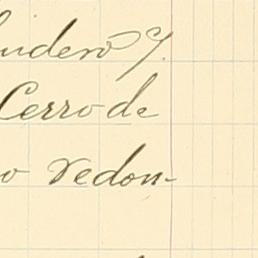 udero y.
Cerro de
o redon-